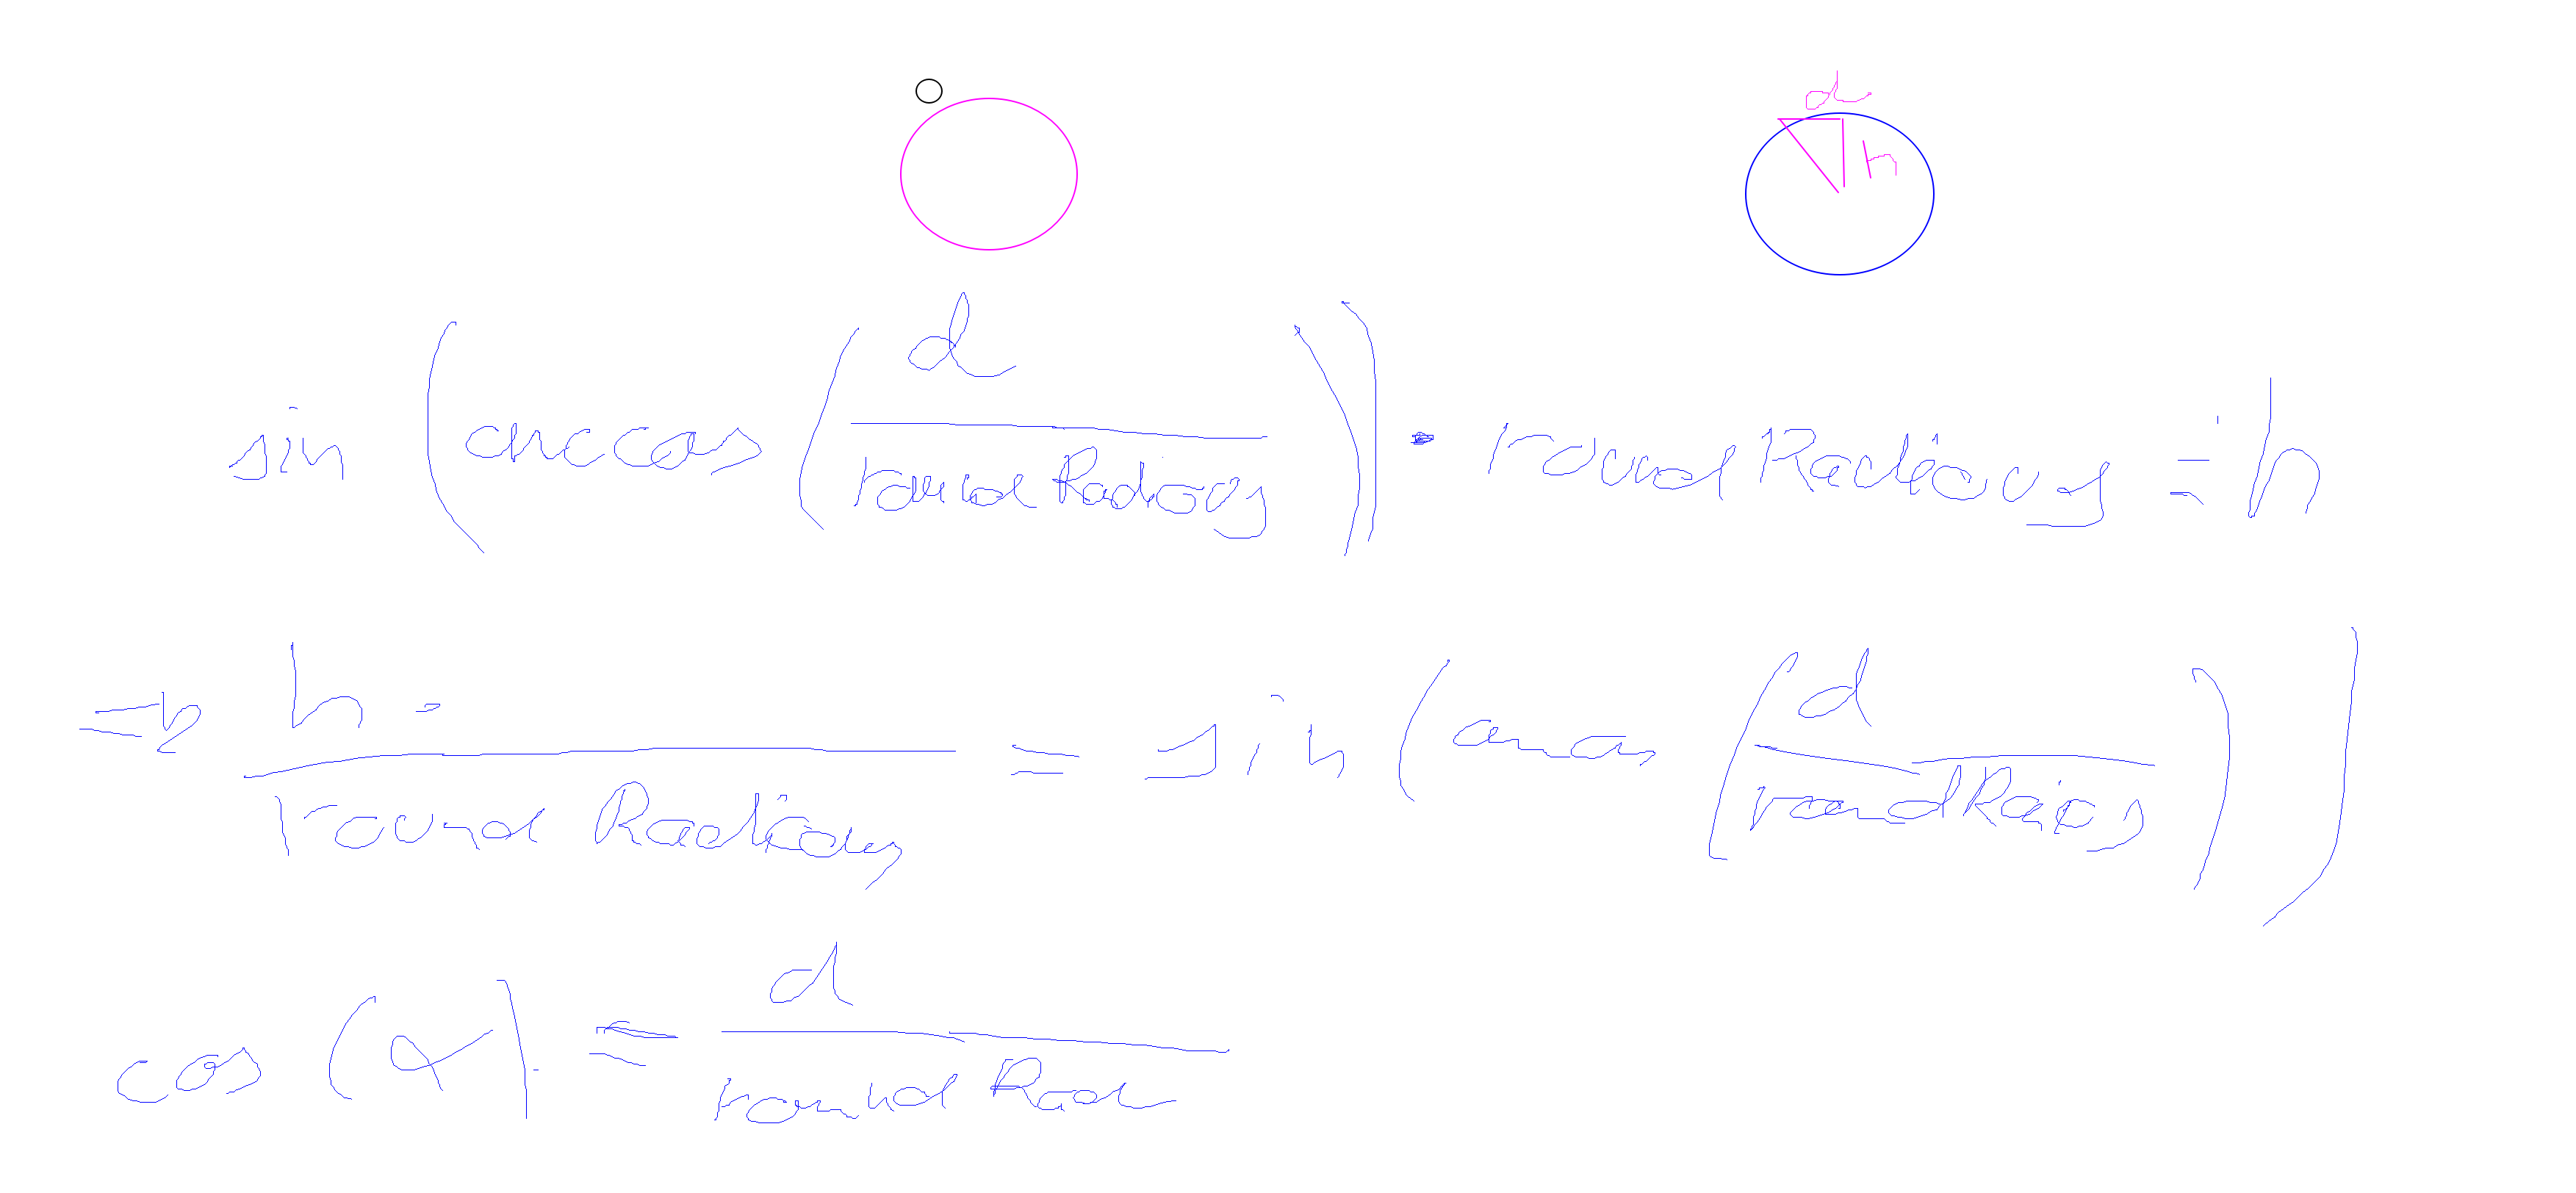 d
h
sin (arccos (d / roundRadious)) · roundRadious = h
=> h / roundRadious = sin (arccos (d / roundRadios))
cos (α) = d / roundRad